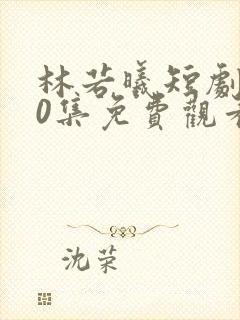 林若曦短劇
0集免費觀看
沈荣